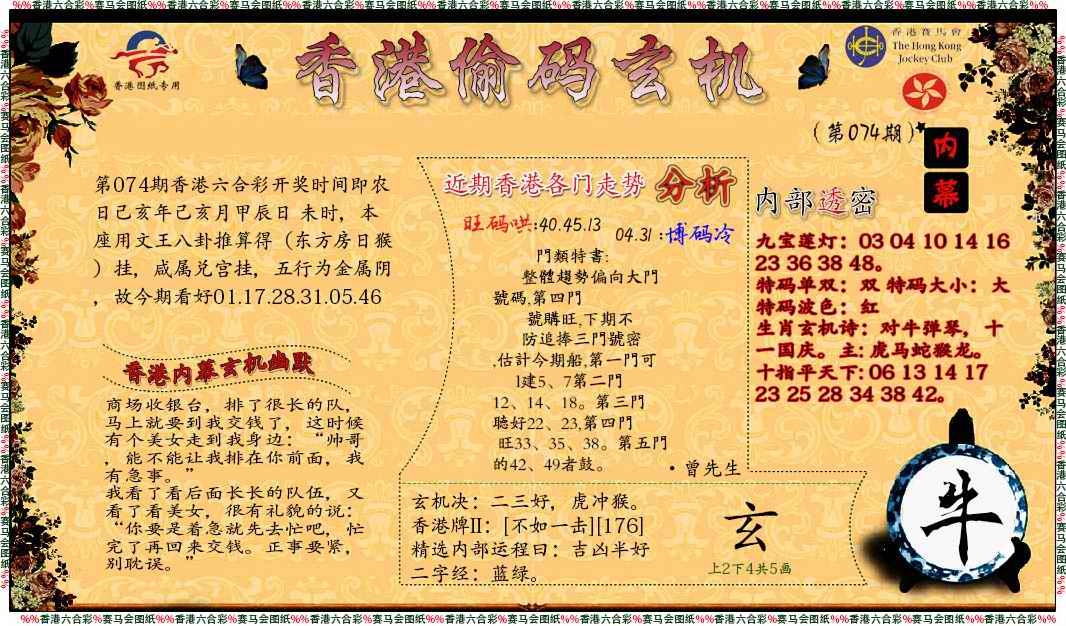 %%香港六合彩%赛马会图纸%%香港六合彩%赛马会图纸%%香港六合彩%赛马会图纸%%香港六合彩%赛马会图纸%%香港六合彩%赛马会图纸%%香港六合彩%赛马会图纸%%香港六合彩%%
香港图纸专用
香港偷码玄机
香港賽馬會
The Hong Kong
Jockey Club
(第074期)
内
幕
第074期香港六合彩开奖时间即农
日己亥年己亥月甲辰日 未时，本
座用文王八卦推算得（东方房日猴
）挂，咸属兑宫挂，五行为金属阴
，故今期看好01.17.28.31.05.46
香港内幕玄机幽默
商场收银台，排了很长的队，
马上就要到我交钱了，这时候
有个美女走到我身边：“帅哥
，能不能让我排在你前面，我
有急事。”
我看了看后面长长的队伍，又
看了看美女，很有礼貌的说：
“你要是着急就先去忙吧，忙
完了再回来交钱。正事要紧，
别耽误。”
近期香港各门走势 分析
旺码哄:40.45.13
04.31:博码冷
門類特書:
整體趨勢偏向大門
號碼,第四門
號購旺,下期不
防追捧三門號密
,估計今期船,第一門可
1建5、7第二門
12、14、18。第三門
聽好22、23,第四門
旺33、35、38。第五門
的42、49者鼓。
•曾先生
玄机决：二三好，虎冲猴。
香港牌II：[不如一击][176]
精选内部运程曰：吉凶半好
二字经：蓝绿。
玄
上2下4共5画
内部透密
九宝莲灯：03 04 10 14 16
23 36 38 48。
特码单双：双 特码大小：大
特码波色：红
生肖玄机诗：对牛弹琴，十
一国庆。主:虎马蛇猴龙。
十指平天下:06 13 14 17
23 25 28 34 38 42。
牛
%%香港六合彩%赛马会图纸%%香港六合彩%赛马会图纸%%香港六合彩%赛马会图纸%%香港六合彩%赛马会图纸%%香港六合彩%赛马会图纸%%香港六合彩%赛马会图纸%%香港六合彩%%